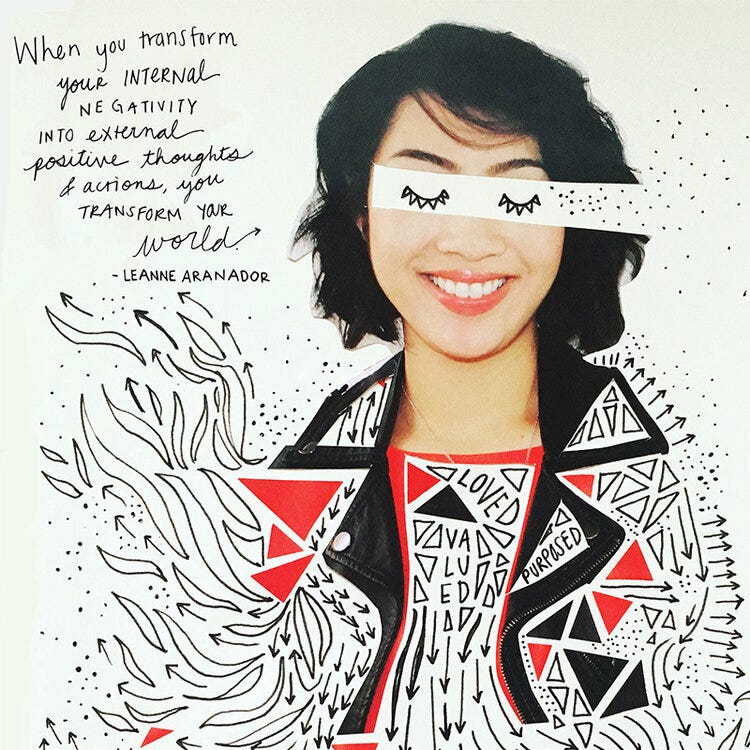 When you transform
your INTERNAL
NEGATIVITY
INTO external
positive thoughts
& actions, you
TRANSFORM YOUR
world.
- LEANNE ARANADOR
LOVED
VALUED
PURPOSED